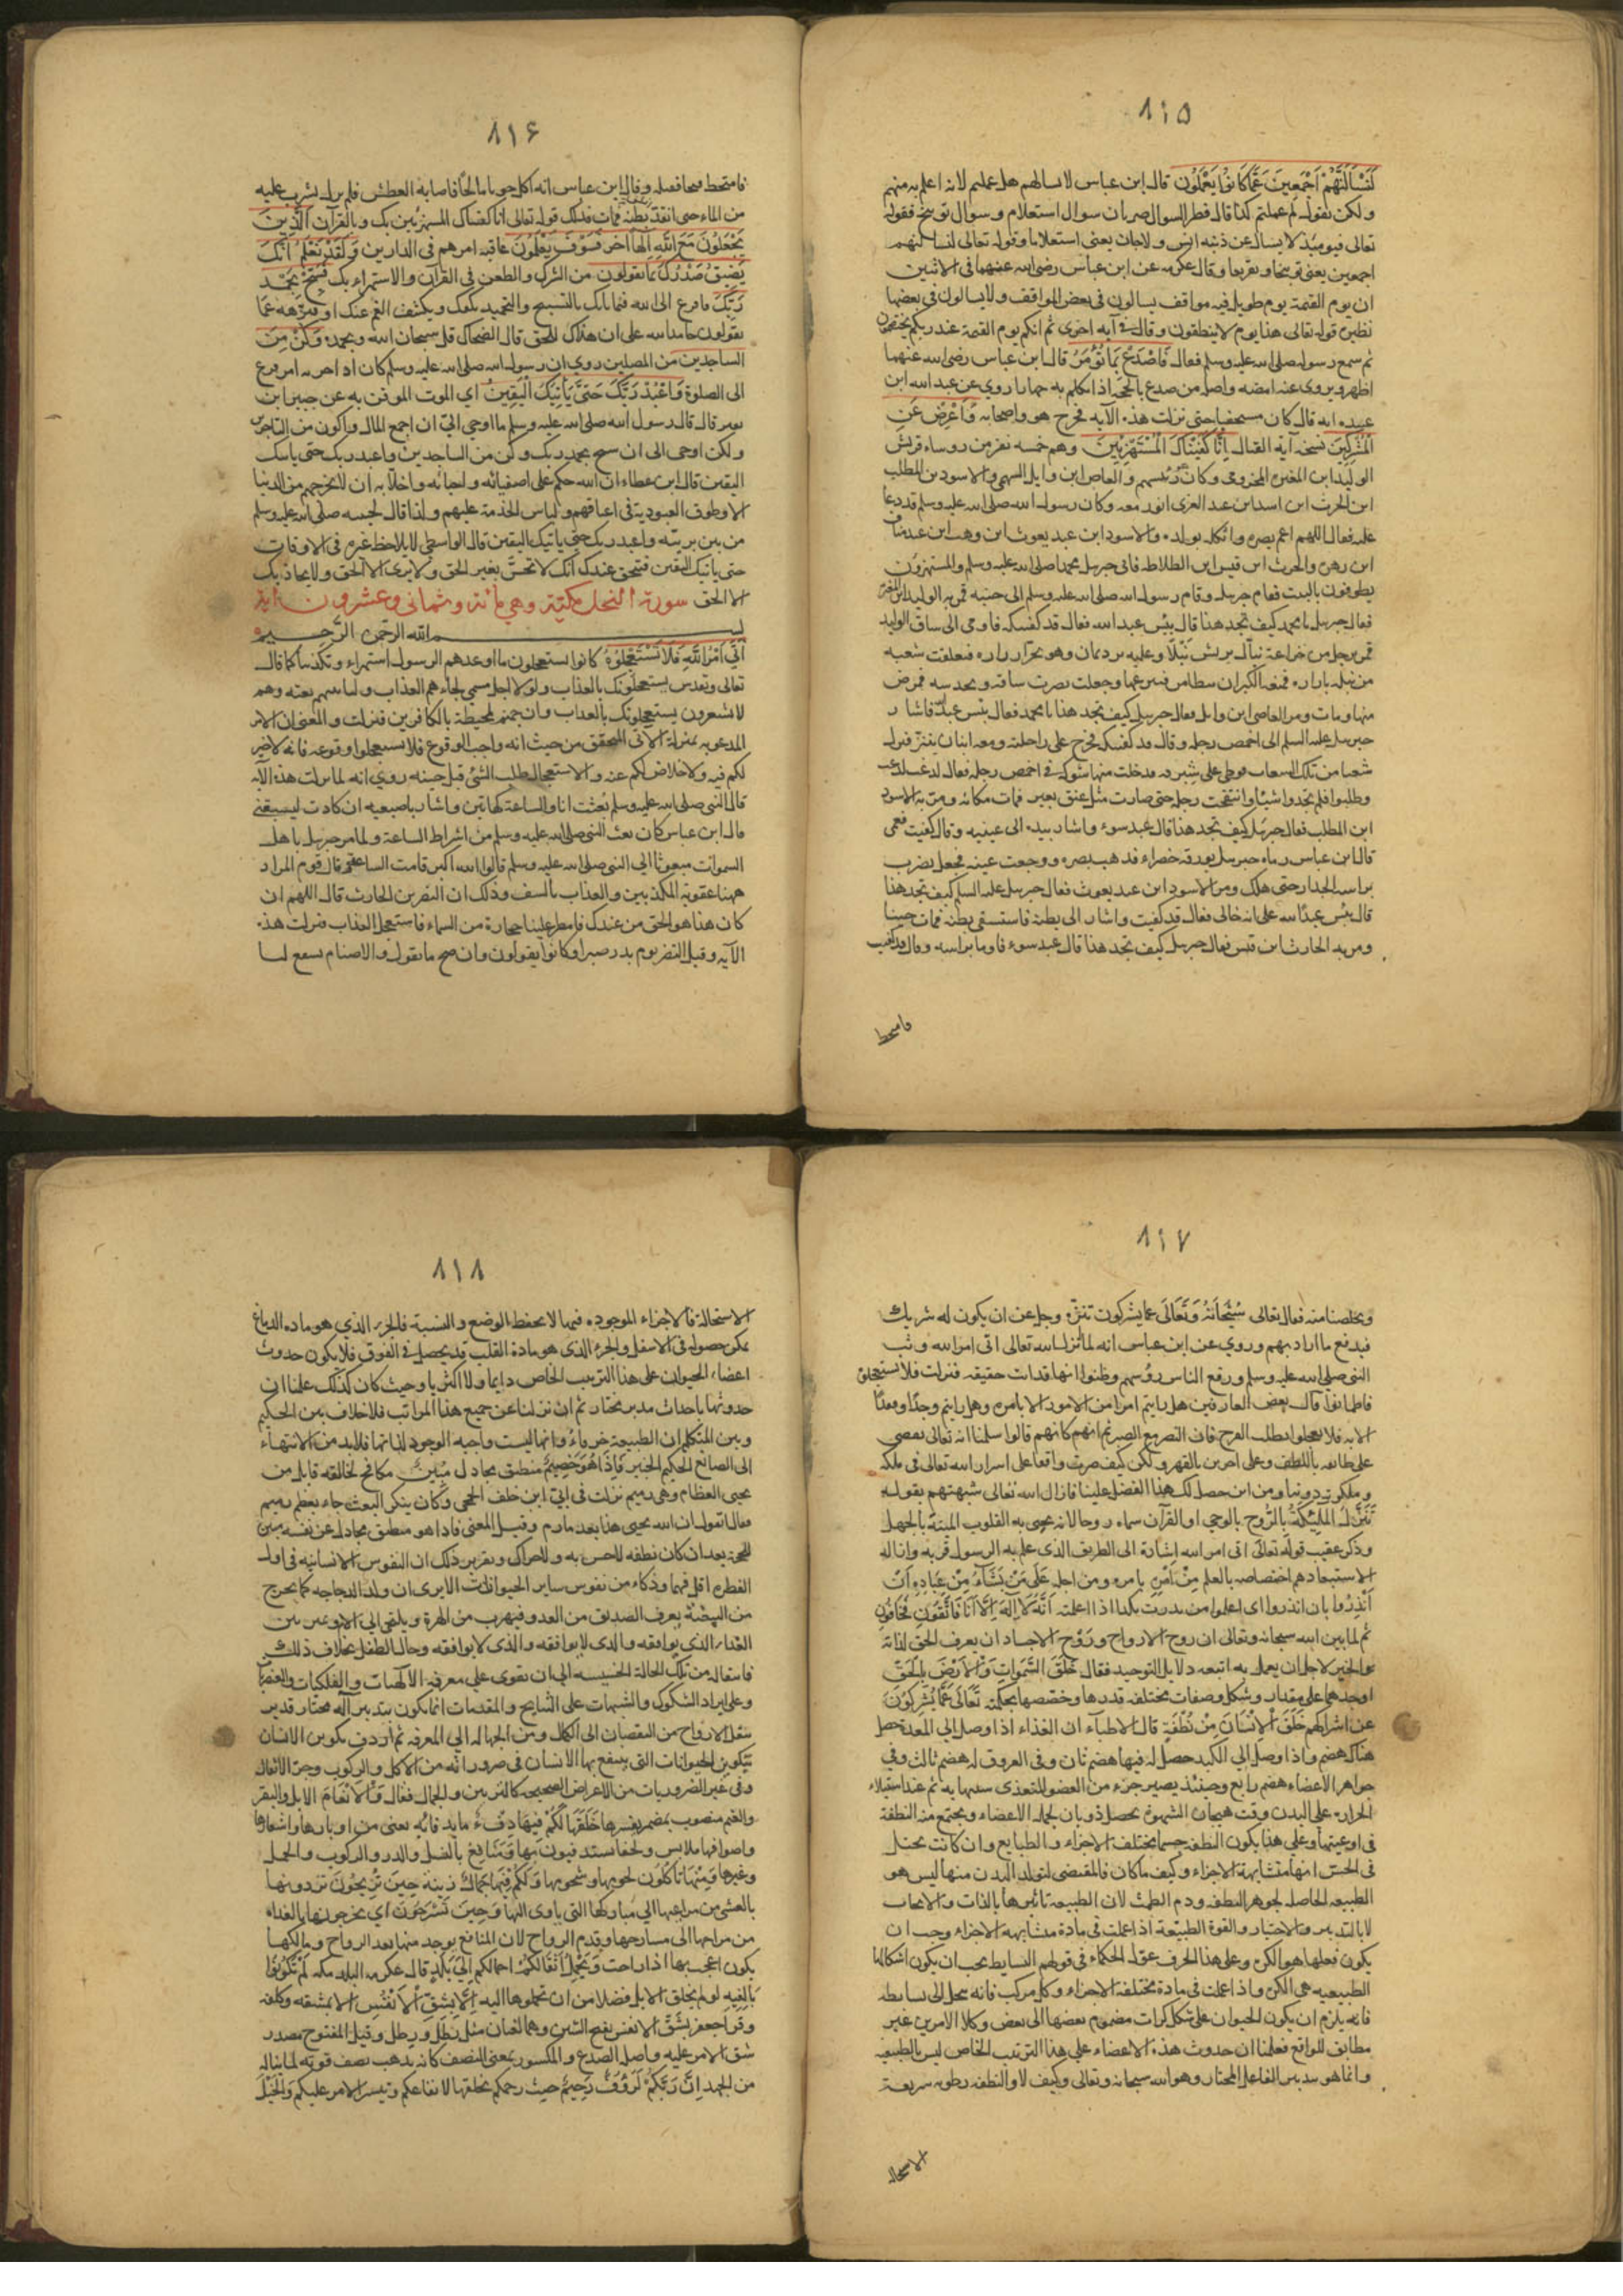 ٨١۵
لَنَسْأَلَنَّهُمْ أَجْمَعِينَ عَمَّا كَانُوا يَعْمَلُونَ قال ابن عباس لا يسالهم هل عملتم لانه اعلم به منهم
ولكن يقول لم عملتم كذا قال قطرب السوال ضربان سوال استعلام وسوال توبيخ فقوله
تعالى فيومئذ لا يسال عن ذنبه انس ولا جان يعنى استعلاما وقوله تعالى لنسالنهم
اجمعين يعنى توبيخا وتقريعا وقال عكرمه عن ابن عباس رضى الله عنهما فى الاثنين
ان يوم القيمة يوم طويل فيه مواقف يسالون فى بعض المواقف ولا يسالون فى بعضها
نظيره قوله تعالى هذا يوم لا ينطقون وقال فى آيه اخرى ثم انكم يوم القيمة عند ربكم تختصمون
ثم سمع رسوله صلى الله عليه وسلم فقال فَاصْدَعْ بِمَا تُؤْمَرُ قال ابن عباس رضى الله عنهما
اظهر ويروى عنه امضه واصله من صدع بالحجة اذا تكلم به جهارا روي عن عبد الله ابن
عبيده انه قال كان مستخفيا حتى نزلت هذه الآيه فخرج هو واصحابه وَأَعْرِضْ عَنِ
الْمُشْرِكِينَ نسخه آية القتال إِنَّا كَفَيْنَاكَ الْمُسْتَهْزِئِينَ وهم خمسه نفر من روساء قريش
الوليد ابن المغيره المخزومى وكان رئيسهم والعاص ابن وايل السهمى والاسود بن المطلب
ابن الحرث ابن اسد ابن عبد العزى وكان رسول الله صلى الله عليه وسلم قد دعا
عليه فقال اللهم اعم بصره واثكله بولده والاسود ابن عبد يغوث ابن وهب ابن عبد مناف
ابن زهره والحرث ابن قيس ابن الطلاطله فاتى جبريل محمدا صلى الله عليه وسلم والمستهزؤن
يطوفون بالبيت فقام جبريل وقام رسول الله صلى الله عليه وسلم الى جنبه فمر به الوليد ابن المغيره
فقال جبريل يا محمد كيف تجد هذا قال بئس عبد الله فقال قد كفيتكه فاومى الى ساق الوليد
فمر برجل من خزاعة نبّال يريش نَبْلًا وعليه برد يمان وهو يجر ازاره فتعلقت شعبه
من نبله بازاره فمنعه الكبر ان يتطامن فينزعها وجعلت تضرب ساقه وتخدشه فمرض
منها ومات ومر العاصى ابن وايل فقال جبريل كيف تجد هذا يا محمد فقال بئس عبد الله فاشار
جبريل عليه السلم الى اخمص رجله وقال قد كفيتكه فخرج على راحلته ومعه ابنان يتنزه فنزل
شعبا من تلك الشعاب فوطى على شبرقه فدخلت منها شوكه فى اخمص رجله فقال لدغت لدغت
وطلبوا فلم يجدوا شيئا وانتفخت رجله حتى صارت مثل عنق بعير فمات مكانه ومر به الاسود
ابن المطلب فقال جبريل كيف تجد هذا قال عبد سوء واشار بيده الى عينيه وقال كفيت فعمى
قال ابن عباس رماه جبريل بورقه خضراء فذهب بصره ووجعت عينه فجعل يضرب
براسه الجدار حتى هلك ومر الاسود ابن عبد يغوث فقال جبريل عليه السلم كيف تجد هذا
قال بئس عبد الله على انه خالى فقال قد كفيت واشار الى بطنه فاستسقى بطنه فمات حينا
ومر به الحارث ابن قيس فقال جبريل كيف تجد هذا قال عبد سوء فاوما براسه وقال قد كفيت
فامتخط
٨١۶
فامتخط قيحا فقتله وقال ابن عباس انه اكل حوتا مالحا فاصابه العطش فلم يزل يشرب عليه
من الماء حتى انقد بطنه فمات فذلك قوله تعالى انا كفيناك المستهزئين بك وبالقرآن الَّذِينَ
يَجْعَلُونَ مَعَ اللَّهِ إِلَهًا آخَرَ فَسَوْفَ يَعْلَمُونَ عاقبه امرهم فى الدارين وَلَقَدْ نَعْلَمُ أَنَّكَ
يَضِيقُ صَدْرُكَ بِمَا يَقُولُونَ من الشرك والطعن فى القرآن والاستهزاء بك فَسَبِّحْ بِحَمْدِ
رَبِّكَ فافزع الى الله فيما نابك بالتسبيح والتحميد يكفك ويكشف الغم عنك او فنزهه عما
يقولون حامدا له على ان هداك للحق قال الضحاك قل سبحان الله وبحمده وَكُنْ مِنَ
الساجدين من المصلين روي ان رسول الله صلى الله عليه وسلم كان اذا حزبه امر فزع
الى الصلوة وَاعْبُدْ رَبَّكَ حَتَّى يَأْتِيَكَ الْيَقِينُ اي الموت الموقن به عن جبير ابن
نفير قال قال رسول الله صلى الله عليه وسلم ما اوحي اليّ ان اجمع المال واكون من التاجرين
ولكن اوحى الى ان سبح بحمد ربك وكن من الساجدين واعبد ربك حتى ياتيك
اليقين قال ابن عطاء ان الله حكم على اصفيائه وانبيائه واخلائه ان لا يخرجهم من الدنيا
الا وطوق العبودية فى اعناقهم ولباس الخدمة عليهم ولذا قال لحبيبه صلى الله عليه وسلم
من بين بريته واعبد ربك حتى ياتيك اليقين قال الواسطى لا يلاحظ غيره فى الاوقات
حتى ياتيك اليقين فتحقق عندك انك لا تحس بغير الحق ولا يرى الا الحق ولا يحاذبك
الا الحق سورة النحل مكيّة وهي مائة وثمانى وعشرون آية
بسم الله الرحمن الرحيم
أَتَى أَمْرُ اللَّهِ فَلَا تَسْتَعْجِلُوهُ كانوا يستعجلون ما اوعدهم الرسول استهزاء وتكذيبا كما قال
تعالى وتقدس يستعجلونك بالعذاب ولولا اجل مسمى لجاءهم العذاب ولياتينهم بغته وهم
لا يشعرون يستعجلونك بالعذاب وان جهنم لمحيطة بالكافرين فنزلت والمعنى ان الامر
الموعود به بمنزلة الآتى المحقق من حيث انه واجب الوقوع فلا تستعجلوا وقوعه فانه لا خير
لكم فيه ولا خلاص لكم عنه والاستعجال طلب الشئ قبل حينه روي انه لما نزلت هذه الآيه
قال النبى صلى الله عليه وسلم بُعثت انا والساعة كهاتين واشار باصبعيه ان كادت ليسبقنى
قال ابن عباس كان بعث النبى صلى الله عليه وسلم من اشراط الساعة ولما مر جبريل باهل
السموات مبعوثا الى النبى صلى الله عليه وسلم قالوا الله اكبر قامت الساعة وقال قوم المراد
ههنا عقوبه المكذبين والعذاب بالسيف وذلك ان النضر بن الحارث قال اللهم ان
كان هذا هو الحق من عندك فامطر علينا حجارة من السماء فاستعجل العذاب فنزلت هذه
الآيه وقتل النضر يوم بدر صبرا وكانوا يقولون وان صح ما يقول والاصنام تشفع لنا
٨١٧
ويخلصنا منه فقال تعالى سُبْحَانَهُ وَتَعَالَى عما يشركون تنزّه وجل عن ان يكون له شريك
فيدفع ما اراد بهم وروي عن ابن عباس انه لما انزل الله تعالى اتى امر الله وثب
النبى صلى الله عليه وسلم ورفع الناس رؤسهم وظنوا انها قد اتت حقيقه فنزلت فلا تستعجلوه
فاطمانوا قال بعض العارفين هل رايتم امرا من الامور الا بامره وهل رايتم وجدا وفقدا
الا به فلا تعجلوا بطلب الفرج فان النصر مع الصبر ثم انهم كانهم قالوا سلمنا انه تعالى يقضى
على طائفه باللطف وعلى اخرين بالقهر ولكن كيف صرت واقفا على اسرار الله تعالى فى ملكه
وملكوته دوننا ومن اين حصل لك هذا الفضل علينا فازال الله تعالى شبهتهم بقوله
تَنَزَّلُ الْمَلَئِكَةُ بِالرُّوحِ بالوحي او القرآن سماه روحا لانه يحيى به القلوب الميتة بالجهل
وذكر عقيب قوله تعالى اتى امر الله اشارة الى الطريق الذى علم به الرسول قربه وازاله
لاستبعادهم اختصاصه بالعلم مِنْ أَمْرِهِ بامره ومن اجله عَلَى مَنْ يَشَاءُ مِنْ عِبَادِهِ أَنْ
أَنْذِرُوا بان انذروا اى اعلموا من نذرت بكذا اذا اعلمته أَنَّهُ لَا إِلَهَ إِلَّا أَنَا فَاتَّقُونِ فخافون
ثم لما بين الله سبحانه وتعالى ان روح الارواح وروح الاجساد ان يعرف الحق لذاته
والخير لاجل ان يعمل به اتبعه دلايل التوحيد فقال خَلَقَ السَّمَوَاتِ وَالْأَرْضَ بِالْحَقِّ
اوجدهما على مقدار وشكل وصفات مختلفه قدرها وخصصها بحكمته تَعَالَى عَمَّا يُشْرِكُونَ
عن اشراكهم خَلَقَ الْإِنْسَانَ مِنْ نُطْفَةٍ قال الاطباء ان الغذاء اذا وصل الى المعدة حصل
هناك هضم واذا وصل الى الكبد حصل له فيها هضم ثان وفى العروق له هضم ثالث وفى
جواهر الاعضاء هضم رابع وحينئذ يصير جزء من العضو المتغذى شبيها به ثم عند استيلاء
الحراره على البدن وقت هيجان الشهوة يحصل ذوبان لجملة الاعضاء ويجتمع منه النطفة
فى اوعيتها وعلى هذا يكون النطفه جسما مختلف الاجزاء والطبايع وان كانت تخيل
فى الحس انها متشابهة الاجزاء وكيف ما كان فالمقتضى لتولد البدن منها ليس هو
الطبيعه الحاصله لجوهر النطفه ودم الطمث لان الطبيعة تاثيرها بالذات والايجاب
لا بالتدبير والاختيار والقوة الطبيعة اذا عملت فى مادة متشابهه الاجزاء وجب ان
يكون فعلها هو الكره وعلى هذا الحرف عول الحكماء فى قولهم البسايط يجب ان يكون اشكالها
الطبيعيه هي الكره واذا عملت فى مادة مختلفة الاجزاء وكل مركب فانه ينحل الى بسايطه
فانه يلزم ان يكون الحيوان على شكل كرات مضموم بعضها الى بعض وكلا الامرين غير
مطابق للواقع فعلمنا ان حدوث هذه الاعضاء على هذا الترتيب الخاص ليس بالطبيعه
وانما هو بتدبير الفاعل المختار وهو الله سبحانه وتعالى وكيف لا والنطفه رطوبه سريعة
الاستحاله
٨١٨
الاستحالة فالاجزاء الموجوده فيها لا تحفظ الوضع والنسبة فالجزء الذي هو ماده الدماغ
يمكن حصوله فى الاسفل والجزء الذى هو مادة القلب قد يحصل فى الفوق فلا يكون حدوث
اعضاء الحيوان على هذا الترتيب الخاص دايما ولا اكثريا وحيث كان كذلك علمنا ان
حدوثها باحداث مدبر مختار ثم ان نزلنا عن جميع هذا المراتب فلا خلاف بين الحكيم
وبين المتكلم ان الطبيعة خرقاء وانها ليست واجبه الوجود لذاتها فلابد من الانتهاء
الى الصانع الحكيم الخبير فَإِذَا هُوَ خَصِيمٌ منطيق مجادل مُبِينٌ مكافح لخالقه قايل من
يحيى العظام وهى رميم نزلت فى ابيّ ابن خلف الجمحى وكان ينكر البعث جاء بعظم رميم
فقال اتقول ان الله يحيى هذا بعد ما رم وقيل المعنى فاذا هو منطيق مجادل عن نفسه مبين
للحجة بعد ان كان نطفه لا حس به ولا حراك وتقرير ذلك ان النفوس الانسانيه فى اول
الفطره اقل فهما وذكاء من نفوس ساير الحيوانات الا يرى ان ولد الدجاجه كما يخرج
من البيضة يعرف الصديق من العدو فيهرب من الهرة ويلتجى الى الام ويميز بين
الغذاء الذى يوافقه والذى لا يوافقه وحال الطفل بخلاف ذلك
فانتقاله من تلك الحالة الخسيسه الى ان يقوى على معرفة الآلهيات والفلكيات والعنصريات
وعلى ايراد الشكوك والشبهات على النتايج والمقدمات انما يكون بتدبير آله مختار قدير
ينقل الارواح من النقصان الى الكمال ومن الجهاله الى المعرفه ثم اردف تكوين الانسان
بتكوين الحيوانات التى ينتفع بها الانسان فى ضروراته من الاكل والركوب وجر الاثقال
وفى غير الضروريات من الاغراض الصحيحه كالتزيين والجمال فقال وَالْأَنْعَامَ الابل والبقر
والغنم منصوب بمضمر يفسرها خَلَقَهَا لَكُمْ فِيهَا دِفْءٌ مايدفا به يعنى من اوبارها واشعارها
واصوافها ملابس ولحفا تستدفئون بها وَمَنَافِعُ بالنسل والدر والركوب والحمل
وغيرها وَمِنْهَا تَأْكُلُونَ لحومها وشحومها وَلَكُمْ فِيهَا جَمَالٌ زينة حِينَ تُرِيحُونَ تردونها
بالعشى من مراعيها الى مباركها التى ياوى اليها وَحِينَ تَسْرَحُونَ اى تخرجونها بالغداه
من مراحها الى مسارحها وقدم الرواح لان المنافع يوجد منها بعد الرواح ومالكها
يكون اعجب بها اذا راحت وَتَحْمِلُ أَثْقَالَكُمْ احمالكم إِلَى بَلَدٍ قال عكرمه البلد مكه لَمْ تَكُونُوا
بَالِغِيهِ لو لم يخلق الابل فضلا من ان تحملوها اليه إِلَّا بِشِقِّ الْأَنْفُسِ الا بمشقه وكلفه
وقرا جعفر بشَقّ الانفس بفتح الشين وهما لغتان مثل رَطل ورِطل وقيل المفتوح مصدر
شق الامر عليه واصله الصدع والمكسور بمعنى النصف كانه يذهب نصف قوته لما يناله
من الجهد إِنَّ رَبَّكُمْ لَرَؤُفٌ رَحِيمٌ حيث رحمكم بخلقها لانتفاعكم وتيسير الامر عليكم وَالْخَيْلَ